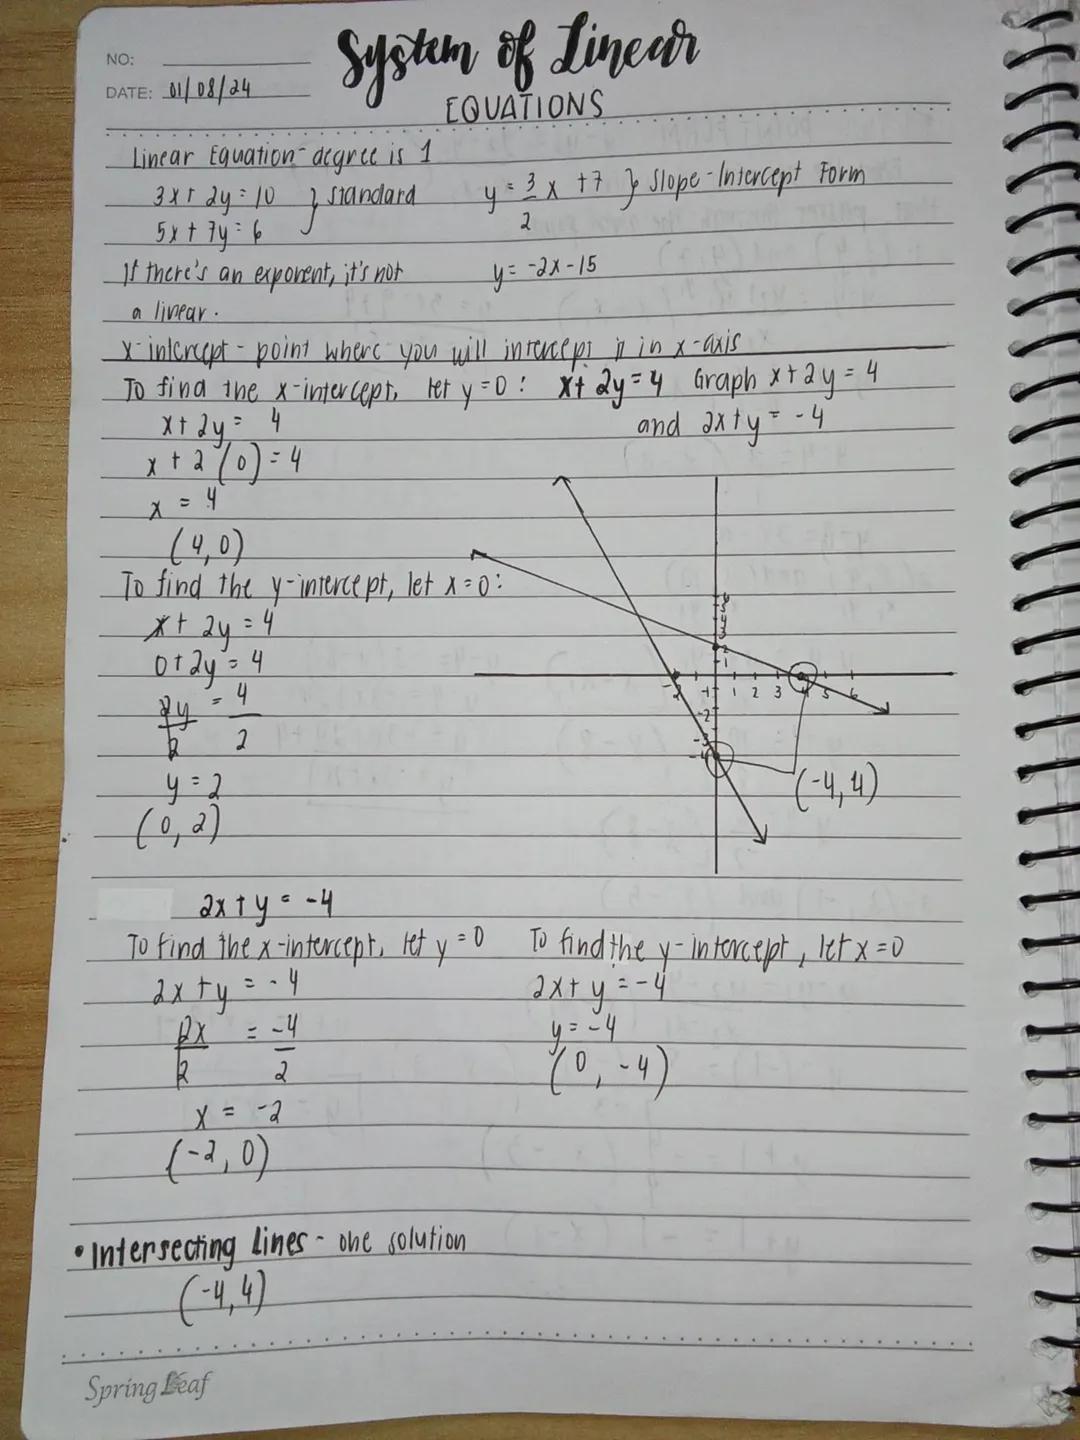 System of Linear
EQUATIONS
NO:
DATE: 01/08/24
Linear Equation - degree is 1
3x + 2y = 10 } Standard
5x + 7y = 6
y = 3/2 x + 7 } Slope-Intercept Form
If there's an exponent, it's not
a linear.
y = -2x - 15
x-intercept - point where you will intercept it in x-axis
To find the x-intercept, let y = 0: x + 2y = 4 Graph x + 2y = 4
and 2x + y = -4
x + 2y = 4
x + 2(0) = 4
x = 4
(4, 0)
To find the y-intercept, let x = 0:
x + 2y = 4
0 + 2y = 4
2y/2 = 4/2
y = 2
(0, 2)
6
5
4
3
2
1
-2 -1 1 2 3 4 5 6
-2
-3
-4
(-4, 4)
2x + y = -4
To find the x-intercept, let y = 0
2x + y = -4
2x/2 = -4/2
x = -2
(-2, 0)
To find the y-intercept, let x = 0
2x + y = -4
y = -4
(0, -4)
• Intersecting Lines - one solution
(-4, 4)
Spring Leaf